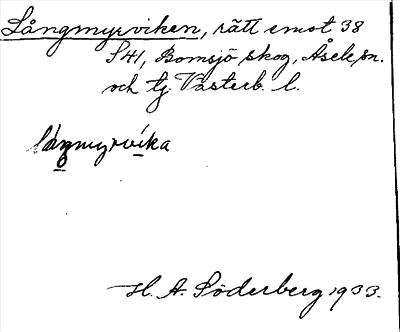 Långmyrviken, rätt emot 38
S 41, Bomsjö skog, Åsele sn.
och tg Västerb. l.
långmyrvika
H. A. Söderberg 1933.